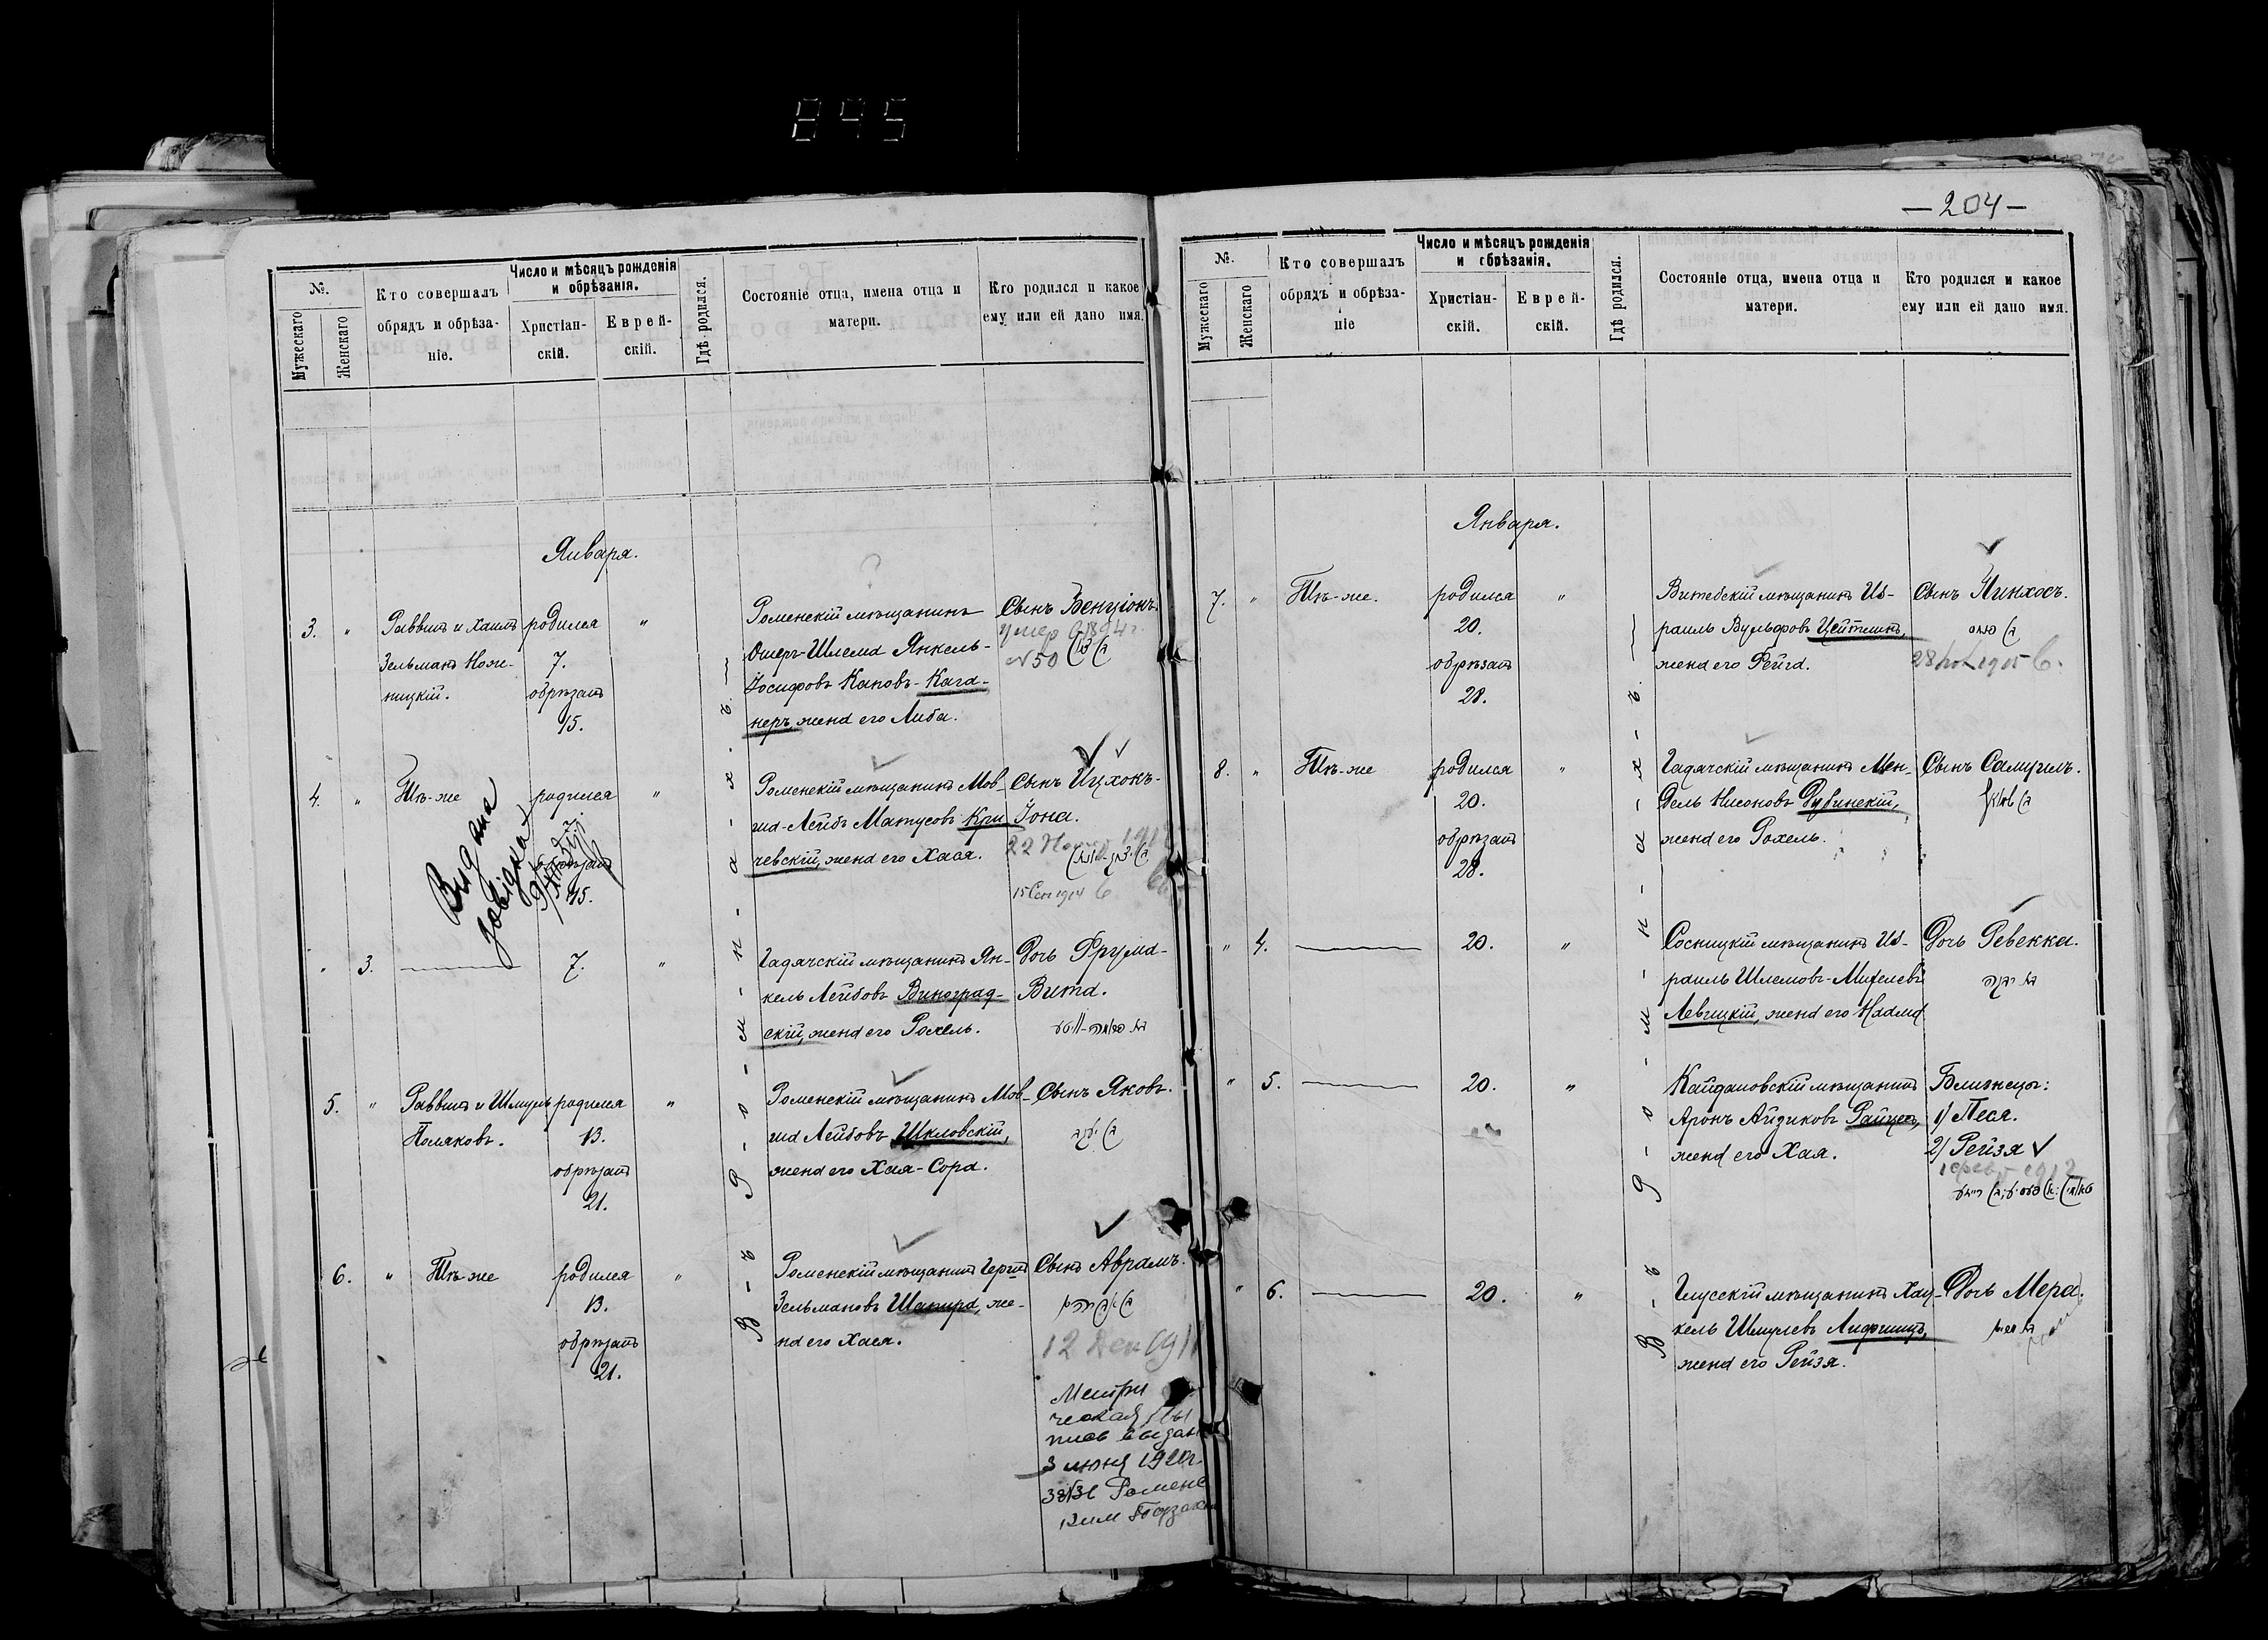 845
№.
Мужескаго
Женскаго
Кто совершалъ
обрядъ и обрѣза-
ніе.
Число и мѣсяцъ рожденія
и обрѣзанія.
Христіан-
скій.
Еврей-
скій.
Гдѣ родился.
Состояніе отца, имена отца и
матери.
Кто родился и какое
ему или ей дано имя.
Января.
3. "
Раввинъ и Хаимъ
Зельманъ Нож-
ницкій.
родился
7.
обрѣзанъ
15.
"
Роменскій мѣщанинъ
Ошеръ-Шлема Янкель-
Іосифовъ Кановъ-Кага-
неръ, жена его Либа.
Сынъ Бенціонъ.
умер 1894 г.
№50
בן
4. "
Тѣ-же
родился
7.
обрѣзанъ
15.
"
Видана
довідка
Роменскій мѣщанинъ Мов-
ша-Лейбъ Матусовъ Кри
чевскій, жена его Хася.
Сынъ Ицхокъ-
Іона.
22
בן יצחק-יונה
15 Сен 1914
" 3.
7.
"
Гадячскій мѣщанинъ Ян-
кель Лейбовъ Виноград-
скій, жена его Рохель.
Дочь Фрума-
Вита.
בת פרומה-וויטע
5. "
Раввинъ и Шмуль
Поляковъ.
родился
13.
обрѣзанъ
21.
"
Роменскій мѣщанинъ Мов-
ша Лейбовъ Шкловскій,
жена его Хая-Сора.
Сынъ Яковъ.
בן יעקב
6. "
Тѣ-же
родился
13.
обрѣзанъ
21.
"
Роменскій мѣщанинъ Герцъ
Зельмановъ Шапира, же-
на его Хася.
Сынъ Аврамъ.
בן אברהם
12 Дек 1911
Метри
ческая вы
пись выдан
3 июня 1920г.
Роменс
ким
В-ъ-Р-о-м-н-а-х-ъ.
— 204 —
№.
Мужескаго
Женскаго
Кто совершалъ
обрядъ и обрѣза-
ніе
Число и мѣсяцъ рожденія
и обрѣзанія.
Христіан-
скій.
Еврей-
скій.
Гдѣ родился.
Состояніе отца, имена отца и
матери.
Кто родился и какое
ему или ей дано имя.
Января.
7. "
Тѣ-же.
родился
20.
обрѣзанъ
28.
"
Витебскій мѣщанинъ Из-
раиль Вульфовъ Цейтлинъ,
жена его Фейга.
Сынъ Пинхосъ.
בן פנחס
28 1915
8. "
Тѣ-же
родился
20.
обрѣзанъ
28.
"
Гадячскій мѣщанинъ Мен-
дель Нисоновъ Дубинскій,
жена его Рохель.
Сынъ Самуилъ.
בן שמואל
" 4.
20.
"
Сосницкій мѣщанинъ Из-
раиль Шлемовъ-Михелевъ
Левицкій, жена его Наама
Дочь Ревекка.
בת רבקה
" 5.
20.
"
Кайдановскій мѣщанинъ
Аронъ Айзиковъ Райцесъ,
жена его Хая.
Близнецы:
1) Песя.
2) Рейзя
1912
" 6.
20.
"
Глусскій мѣщанинъ Хац-
кель Шмулевъ Лифшицъ,
жена его Рейзя.
Дочь Мера.
בת מערא
В-ъ-Р-о-м-н-а-х-ъ.